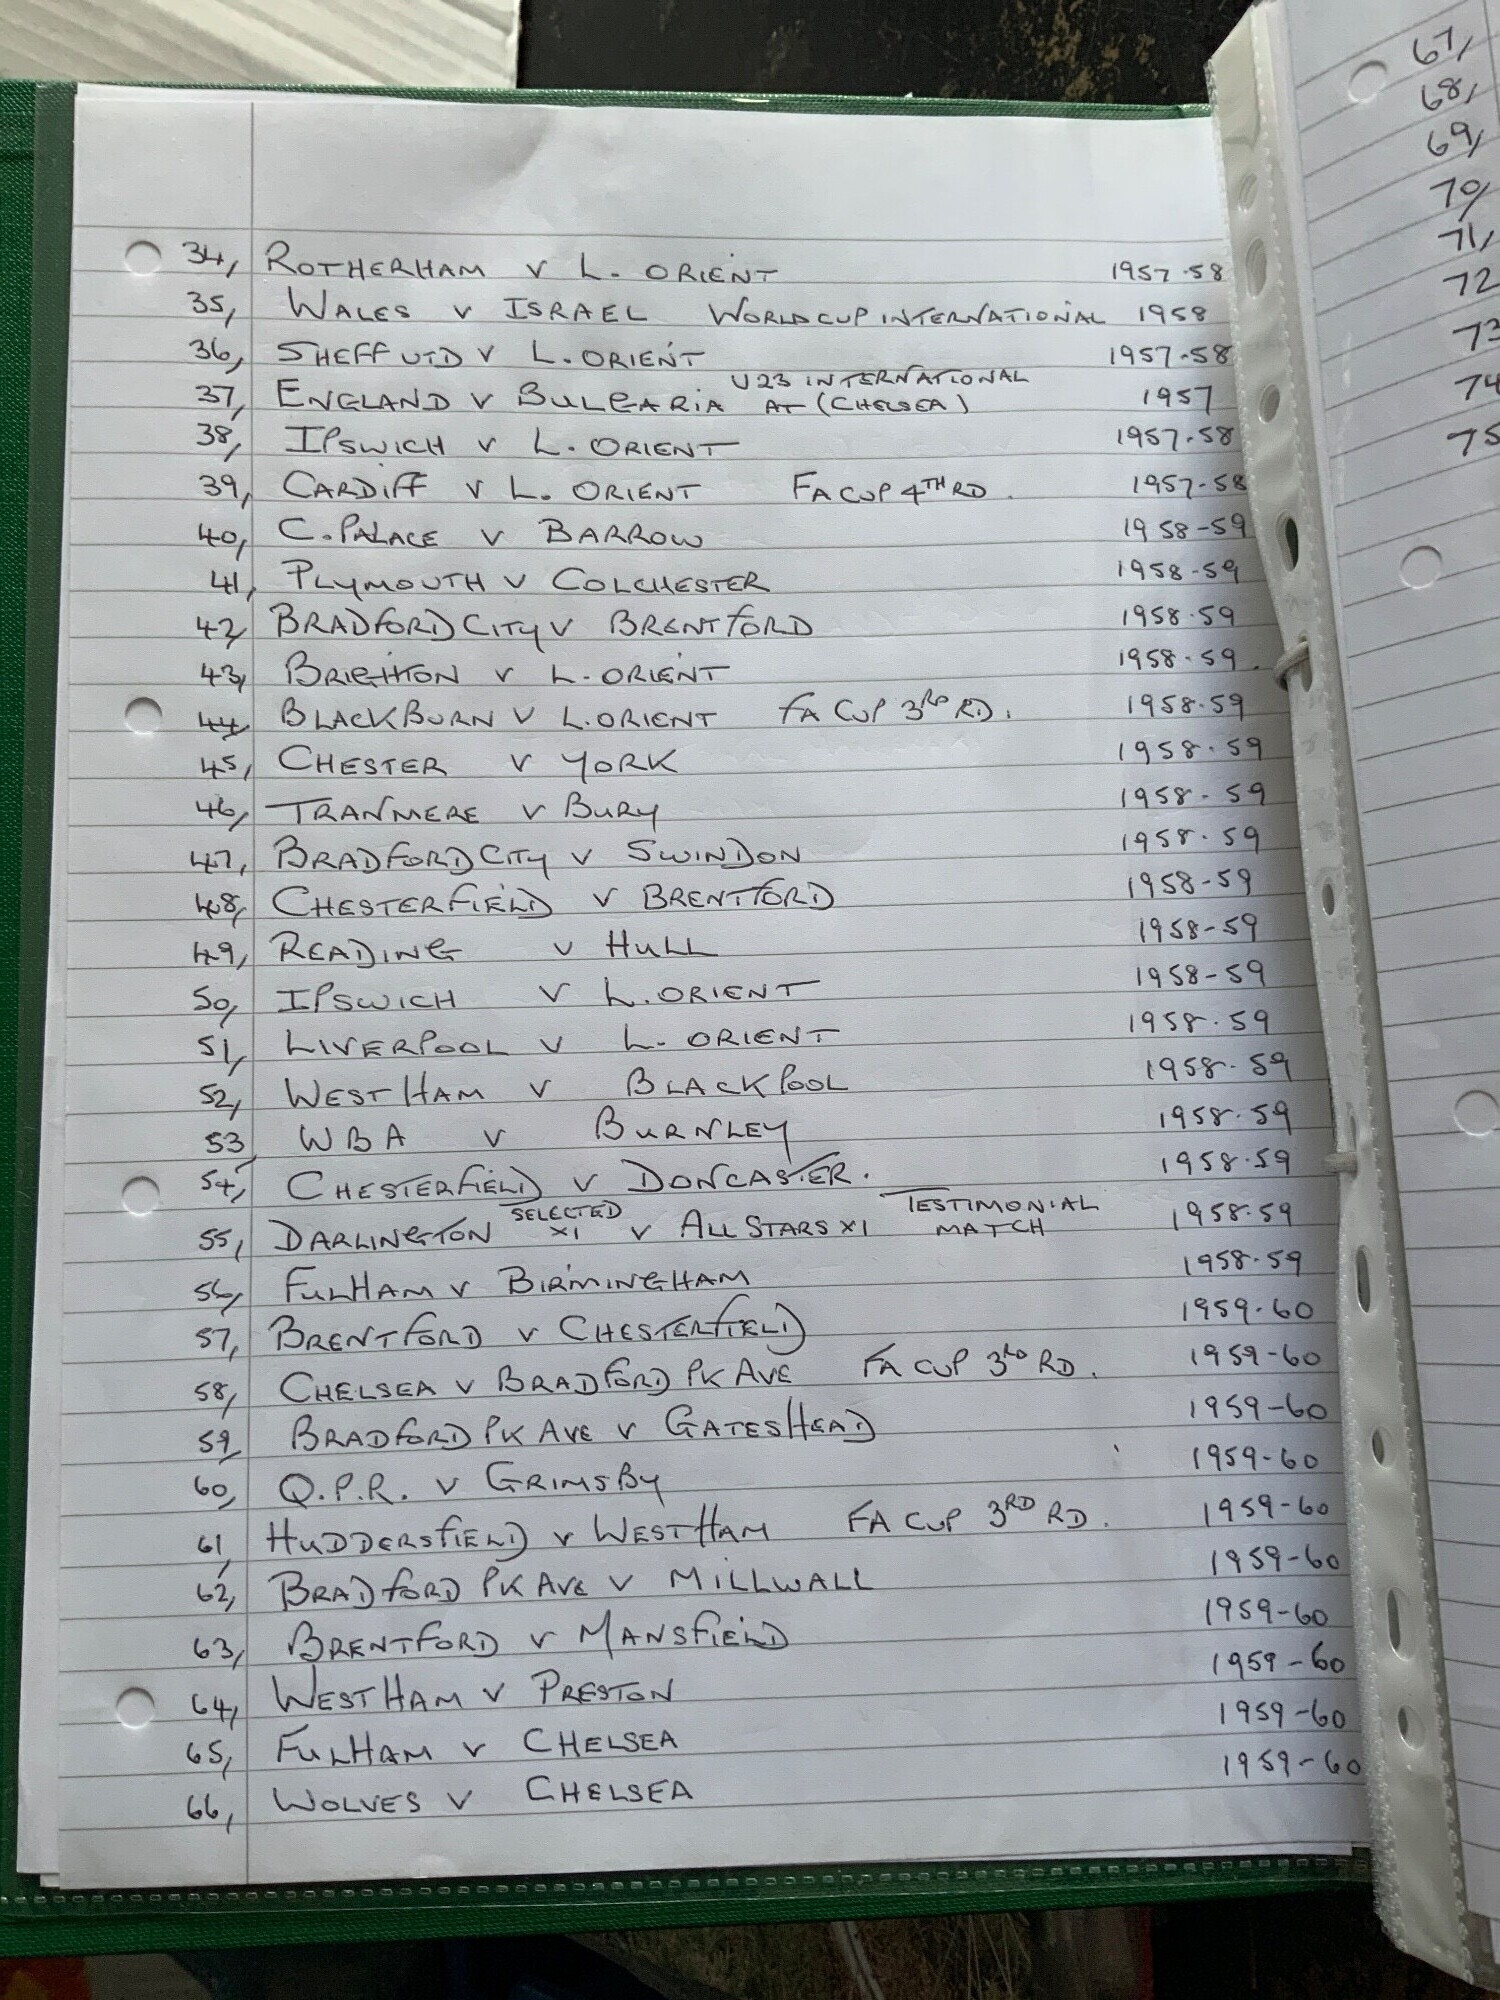 34, ROTHERHAM V L. ORIENT 1957-58
35, WALES V ISRAEL WORLD CUP INTERNATIONAL 1958
36, SHEFF UTD V L. ORIENT 1957-58
37, ENGLAND V BULGARIA U23 INTERNATIONAL AT (CHELSEA) 1957
38, IPSWICH V L. ORIENT 1957-58
39, CARDIFF V L. ORIENT FA CUP 4TH RD. 1957-58
40, C. PALACE V BARROW 1958-59
41, PLYMOUTH V COLCHESTER 1958-59
42, BRADFORD CITY V BRENTFORD 1958-59
43, BRIGHTON V L. ORIENT 1958-59.
44, BLACKBURN V L. ORIENT FA CUP 3RD RD. 1958-59
45, CHESTER V YORK 1958-59
46, TRANMERE V BURY 1958-59
47, BRADFORD CITY V SWINDON 1958-59
48, CHESTERFIELD V BRENTFORD 1958-59
49, READING V HULL 1958-59
50, IPSWICH V L. ORIENT 1958-59
51, LIVERPOOL V L. ORIENT 1958-59
52, WEST HAM V BLACKPOOL 1958-59
53, WBA V BURNLEY 1958-59
54, CHESTERFIELD V DONCASTER. 1958-59
55, DARLINGTON SELECTED XI V ALL STARS XI TESTIMONIAL MATCH 1958-59
56, FULHAM V BIRMINGHAM 1958-59
57, BRENTFORD V CHESTERFIELD 1959-60
58, CHELSEA V BRADFORD PK AVE FA CUP 3RD RD. 1959-60
59, BRADFORD PK AVE V GATESHEAD 1959-60
60, Q.P.R. V GRIMSBY 1959-60
61, HUDDERSFIELD V WEST HAM FA CUP 3RD RD. 1959-60
62, BRADFORD PK AVE V MILLWALL 1959-60
63, BRENTFORD V MANSFIELD 1959-60
64, WEST HAM V PRESTON 1959-60
65, FULHAM V CHELSEA 1959-60
66, WOLVES V CHELSEA 1959-60
67,
68,
69,
70,
71,
72
73
74
75